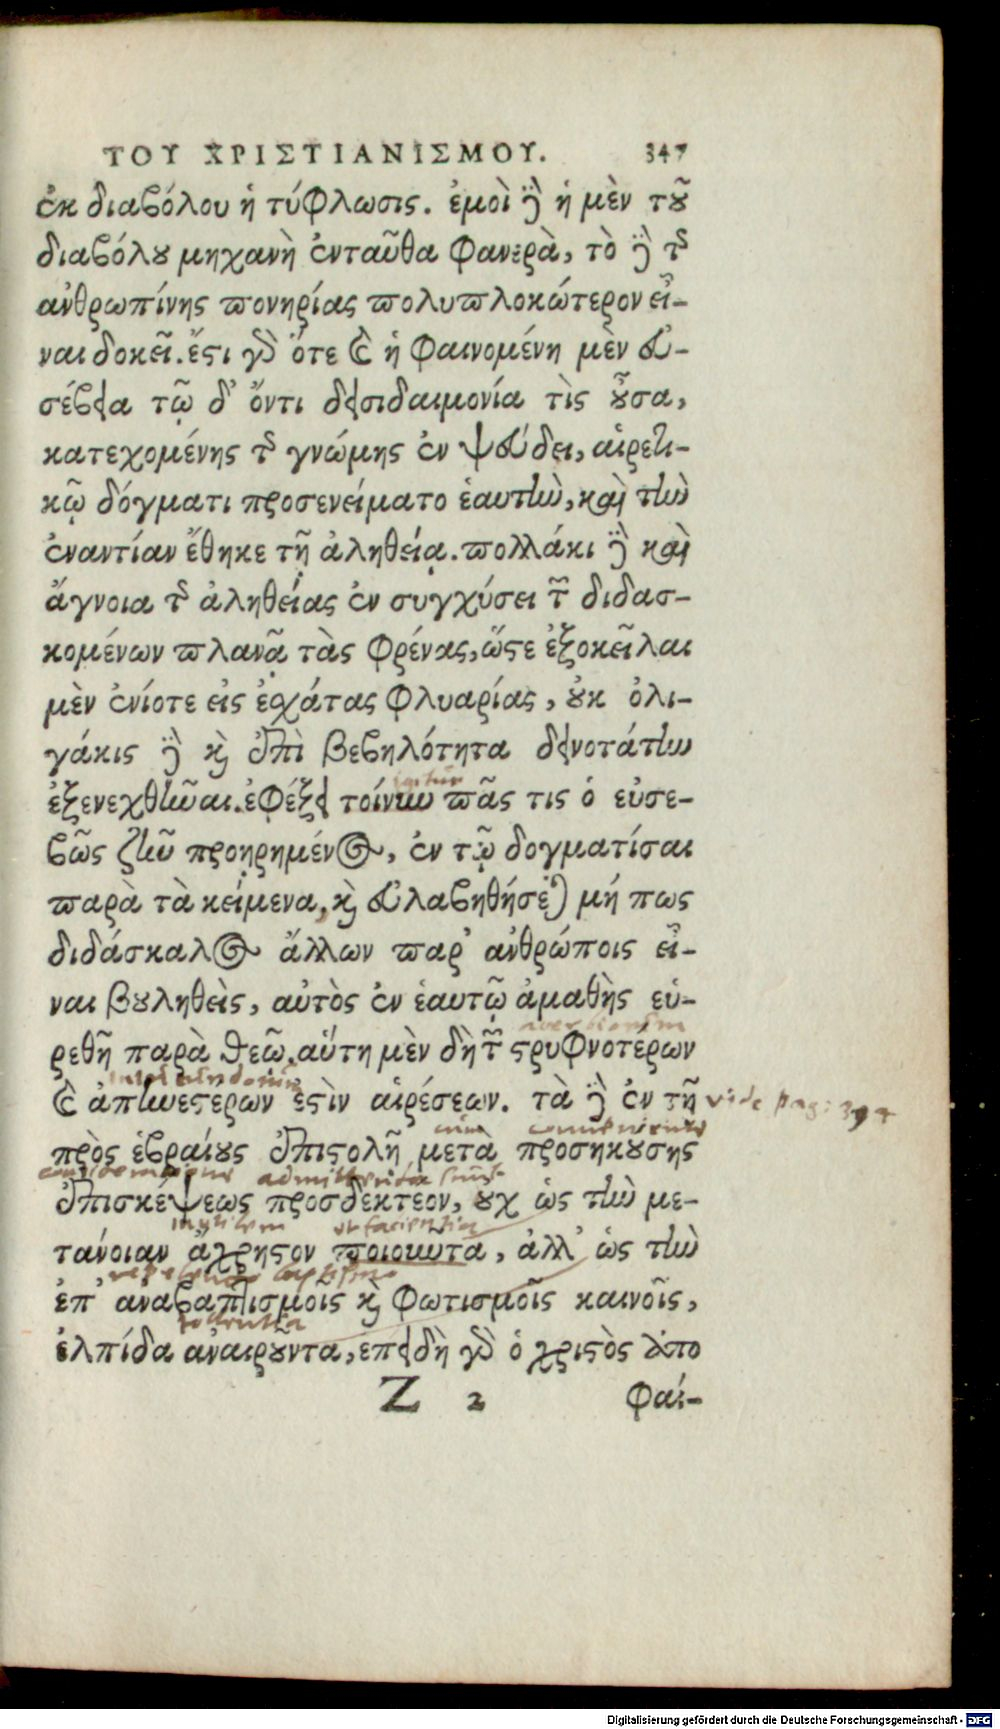 ΤΟΥ ΧΡΙΣΤΙΑΝΙΣΜΟΥ. 347
ἐκ διαβόλου ἡ τύφλωσις. ἐμοὶ δὲ ἡ μὲν τοῦ
διαβόλου μηχανὴ ἐνταῦθα φανερὰ, τὸ δὲ τῆς
ἀνθρωπίνης πονηρίας πολυπλοκώτερον εἶ-
ναι δοκεῖ. ἔστι γὰρ ὅτε καὶ ἡ φαινομένη μὲν εὐ-
σέβεια τῷ δ' ὄντι δεισιδαιμονία τὶς οὖσα,
κατεχομένης τῆς γνώμης ἐν ψεύδει, αἱρετι-
κῷ δόγματι προσενείματο ἑαυτὴν, καὶ τὴν
ἐναντίαν ἔθηκε τῇ ἀληθείᾳ. πολλάκι δὲ καὶ
ἄγνοια τῆς ἀληθείας ἐν συγχύσει τῶν διδασ-
κομένων πλανᾷ τὰς φρένας, ὥστε ἐξοκεῖλαι
μὲν ἐνίοτε εἰς ἐσχάτας φλυαρίας, οὐκ ὀλι-
γάκις δὲ καὶ ἐπὶ βεβηλότητα δεινοτάτην
ἐξενεχθῆναι. ἐφέξει τοίνυν πᾶς τις ὁ εὐσε-
βῶς ζῆν προῃρημένος, ἐν τῷ δογματίσαι
παρὰ τὰ κείμενα, καὶ εὐλαβηθήσεται μή πως
διδάσκαλος ἄλλων παρ' ἀνθρώποις εἶ-
ναι βουληθεὶς, αὐτὸς ἐν ἑαυτῷ ἀμαθὴς εὑ-
ρεθῇ παρὰ θεῷ. αὕτη μὲν δὴ τῶν στρυφνοτέρων
καὶ ἀπηνεστέρων ἐστὶν αἱρέσεων. τὰ δὲ ἐν τῇ vide pag: 394
πρὸς ἑβραίους ἐπιστολῇ μετὰ προσηκούσης
ἐπισκέψεως προσδεκτεον, οὐχ ὡς τὴν με-
τάνοιαν ἄχρηστον ποιουντα, ἀλλ' ὡς τὴν
ἐπ' ἀναβαπτισμοις καὶ φωτισμοῖς καινοῖς,
ἐλπίδα ἀναιρουντα, επειδὴ γὰρ ὁ χριστὸς ἀπο
Z 2 φαί-
Digitalisierung gefördert durch die Deutsche Forschungsgemeinschaft - DFG